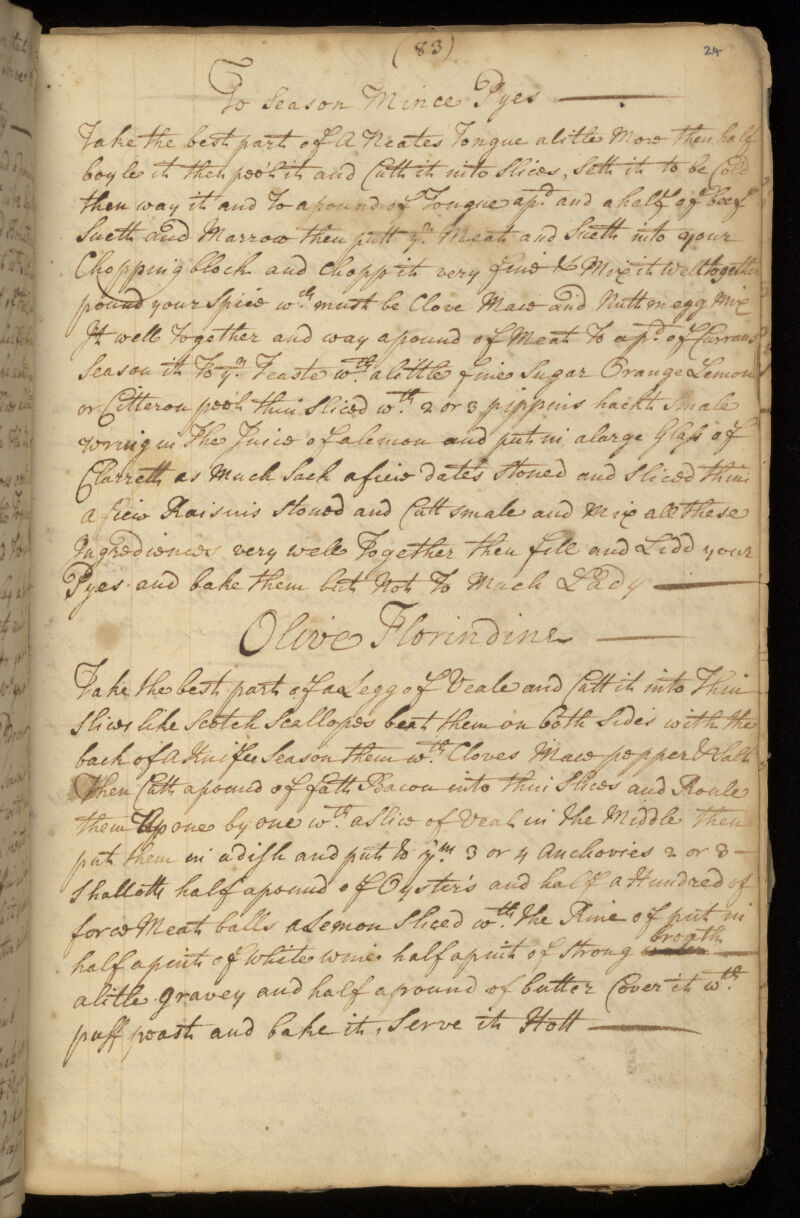 (83)
24
To Season Mince Pyes
Take the best part of A Neates Tongue a litle More then half
boyle it then peel it and Cutt it into Slices, Sett it to be Cold
then way it and To a pound of Tongue a pd and a half of beef
Suett and Marrow then putt ye Meat and Suett into your
Chopping block and Chopp it very fine & Mix it well together
pound your Spice wch must be Clove Mace and Nuttmegg Mix
It well Together and way a pound of Meat To a pd of Currans
Season it To yr Teaste wth a little fine Sugar Orange Lemon
or Citteron peel thin Sliced wth 2 or 3 pippins hackt Smale
wring in The Juice of a lemon and put in a large Glass of
Clarrett as Much Sack a few dates Stoned and Sliced thin
a few Raisins Stoned and Cutt smale and Mix all these
Ingrediences very well Together then fill and Lidd your
Pyes and bake them but Not To Much Lady
Olive Florindine
Take the best part of a Legg of Veale and Cutt it into Thin
Slices like Scotch Scallopes beat them on both Sides with the
back of A Knife Season them wth Cloves Mace pepper & Salt
Then Cutt a pound of fatt Bacon into thin Slices and Roule
them Up one by one wth a Slice of Veal in the Middle then
put them in a dish and put to ym 3 or 4 Anchovies 2 or 3
Shallotts half a pound of Oyster's and half a Hundred of
force Meat balls a Lemon Sliced wth the Rine of put in
half a pint of White wine half a pint of Strong broath
a litle gravey and half a pound of butter Cover it wth
puff peast and bake it, Serve it Hott